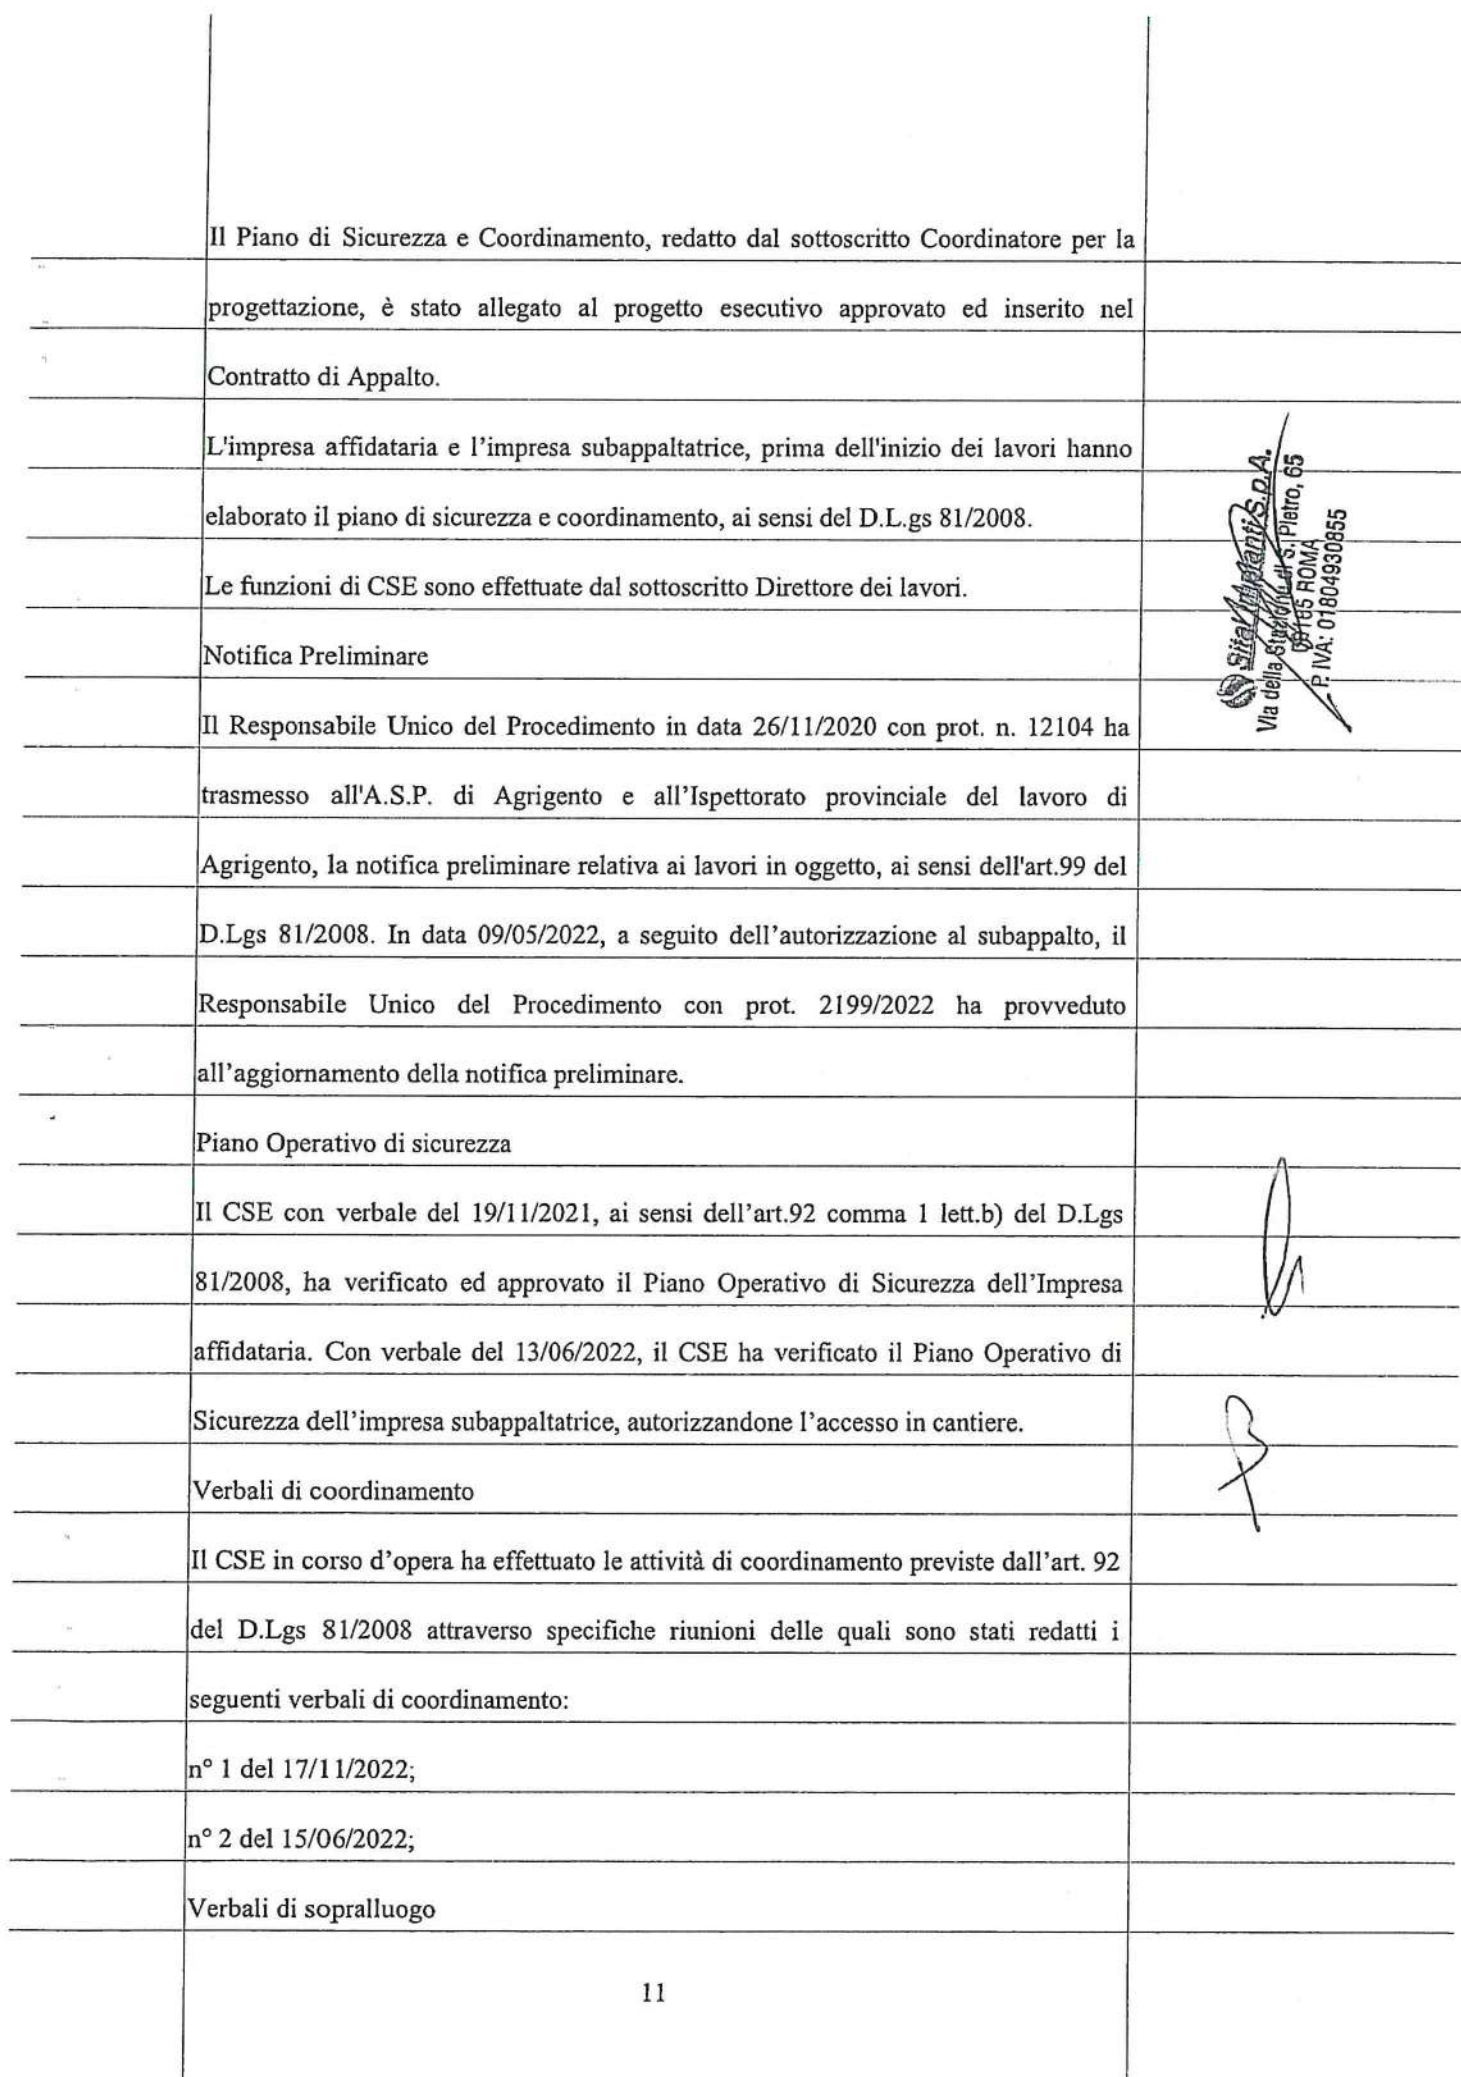 Il Piano di Sicurezza e Coordinamento, redatto dal sottoscritto Coordinatore per la
progettazione, è stato allegato al progetto esecutivo approvato ed inserito nel
Contratto di Appalto.
L'impresa affidataria e l’impresa subappaltatrice, prima dell'inizio dei lavori hanno
elaborato il piano di sicurezza e coordinamento, ai sensi del D.L.gs 81/2008.
Le funzioni di CSE sono effettuate dal sottoscritto Direttore dei lavori.
Notifica Preliminare
Il Responsabile Unico del Procedimento in data 26/11/2020 con prot. n. 12104 ha
trasmesso all'A.S.P. di Agrigento e all’Ispettorato provinciale del lavoro di
Agrigento, la notifica preliminare relativa ai lavori in oggetto, ai sensi dell'art.99 del
D.Lgs 81/2008. In data 09/05/2022, a seguito dell’autorizzazione al subappalto, il
Responsabile Unico del Procedimento con prot. 2199/2022 ha provveduto
all’aggiornamento della notifica preliminare.
Piano Operativo di sicurezza
Il CSE con verbale del 19/11/2021, ai sensi dell’art.92 comma 1 lett.b) del D.Lgs
81/2008, ha verificato ed approvato il Piano Operativo di Sicurezza dell’Impresa
affidataria. Con verbale del 13/06/2022, il CSE ha verificato il Piano Operativo di
Sicurezza dell’impresa subappaltatrice, autorizzandone l’accesso in cantiere.
Verbali di coordinamento
Il CSE in corso d’opera ha effettuato le attività di coordinamento previste dall’art. 92
del D.Lgs 81/2008 attraverso specifiche riunioni delle quali sono stati redatti i
seguenti verbali di coordinamento:
n° 1 del 17/11/2022;
n° 2 del 15/06/2022;
Verbali di sopralluogo
11
Impianti S.p.A.
Via della Stazione di S. Pietro, 65
00165 ROMA
P. IVA: 01804930855